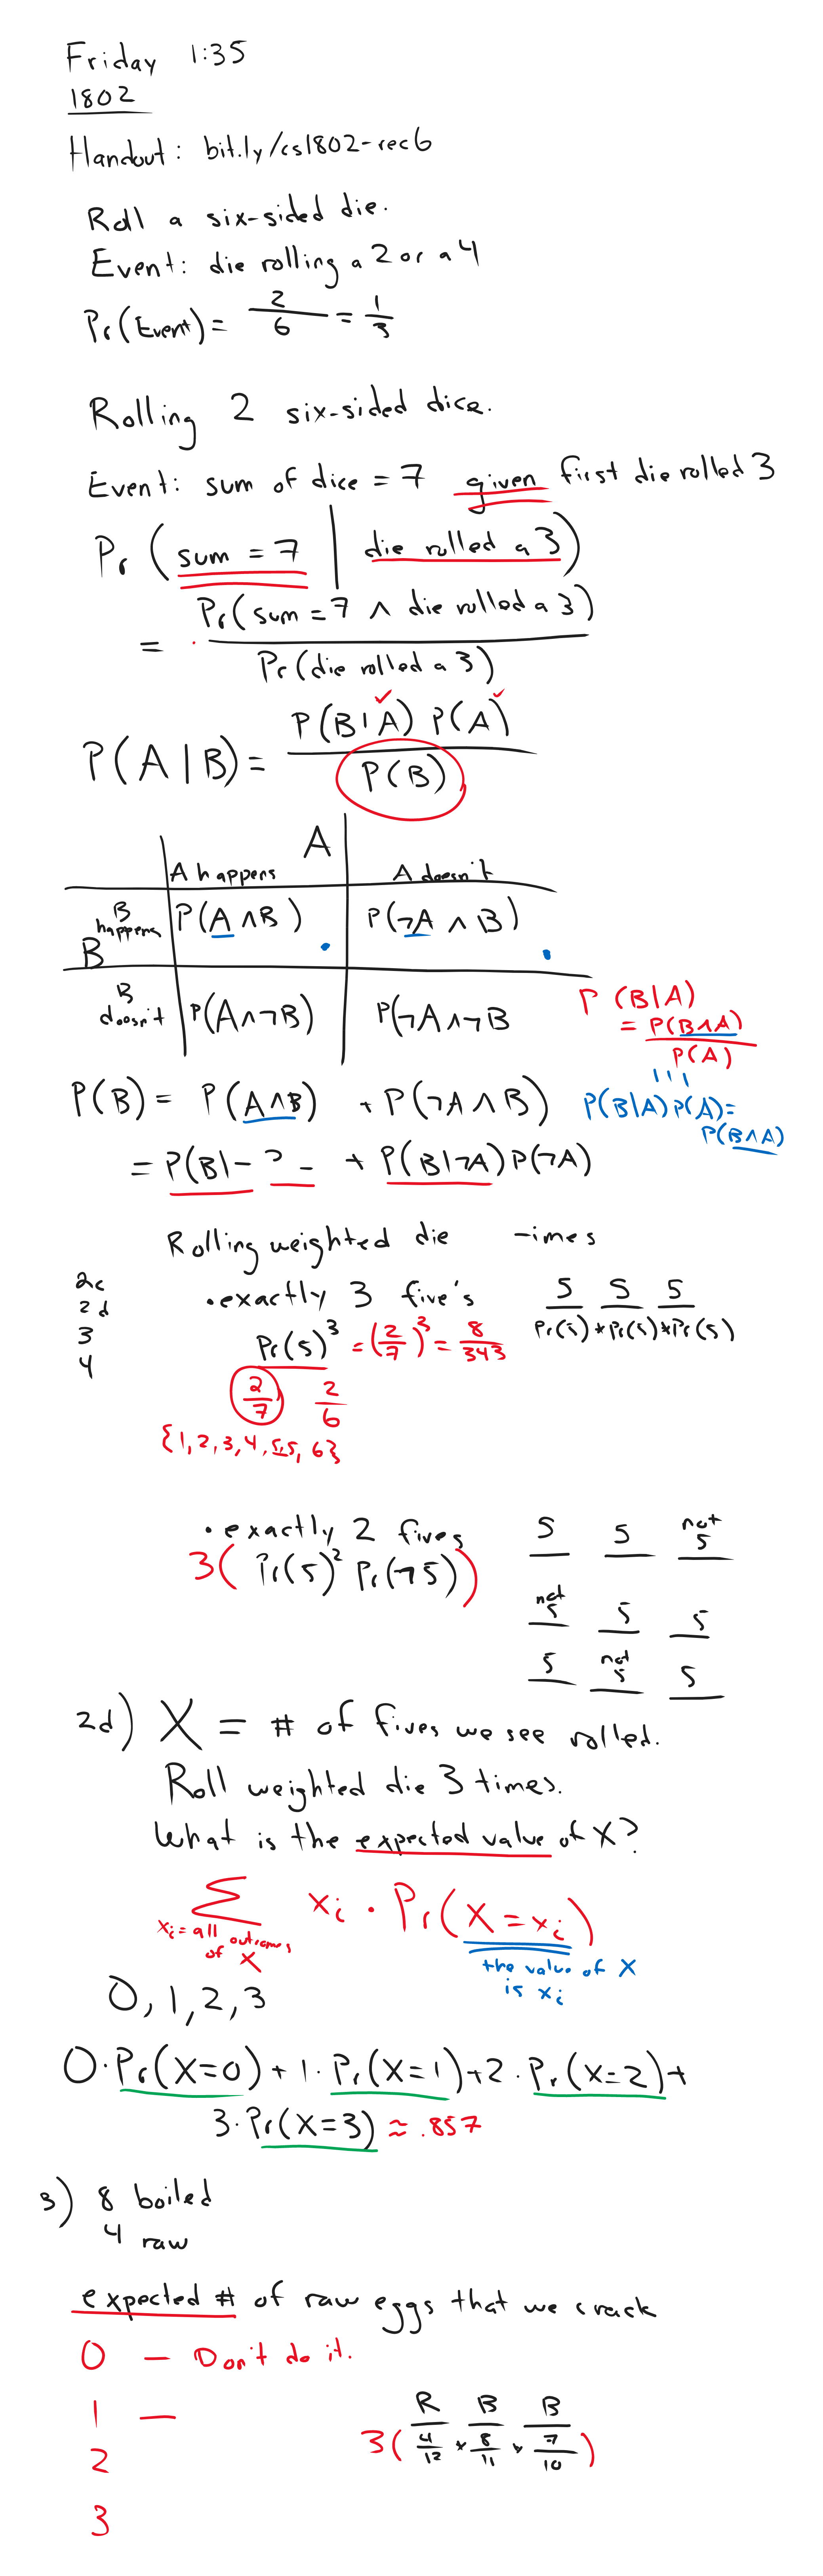 Friday 1:35
1802
Handout: bit.ly/cs1802-rec6
Roll a six-sided die.
Event: die rolling a 2 or a 4
Pr(Event) = 2/6 = 1/3
Rolling 2 six-sided dice.
Event: sum of dice = 7 given first die rolled 3
Pr(sum = 7 | die rolled a 3)
= Pr(sum = 7 ∧ die rolled a 3) / Pr(die rolled a 3)
P(A|B) = P(B|A) P(A) / P(B)
A
A happens A doesn't
B happens P(A∧B) P(¬A ∧ B)
B
B doesn't P(A∧¬B) P(¬A∧¬B
P(B|A)
= P(B∧A) / P(A)
P(B) = P(A∧B) + P(¬A∧B)
P(B|A) P(A) =
P(B∧A)
= P(B|- ? - + P(B|¬A) P(¬A)
Rolling weighted die -imes
2c
2d
3
4
• exactly 3 five's
5 5 5
Pr(5) * Pr(5) * Pr(5)
Pr(5)³ = (2/7)³ = 8/343
2/7 2/6
{1,2,3,4,5,5,6}
• exactly 2 fives
3(Pr(5)² Pr(¬5))
5 5 not 5
not 5 5 5
5 not 5 5
2d) X = # of fives we see rolled.
Roll weighted die 3 times.
What is the expected value of X?
Σ xi · Pr(X = xi)
xi = all outcomes of X
the value of X
is xi
0, 1, 2, 3
0·Pr(X=0) + 1·Pr(X=1) + 2·Pr(X=2) +
3·Pr(X=3) ≈ .857
3) 8 boiled
4 raw
expected # of raw eggs that we crack
0 — Don't do it.
1 —
R B B
3( 4/12 * 8/11 * 7/10 )
2
3